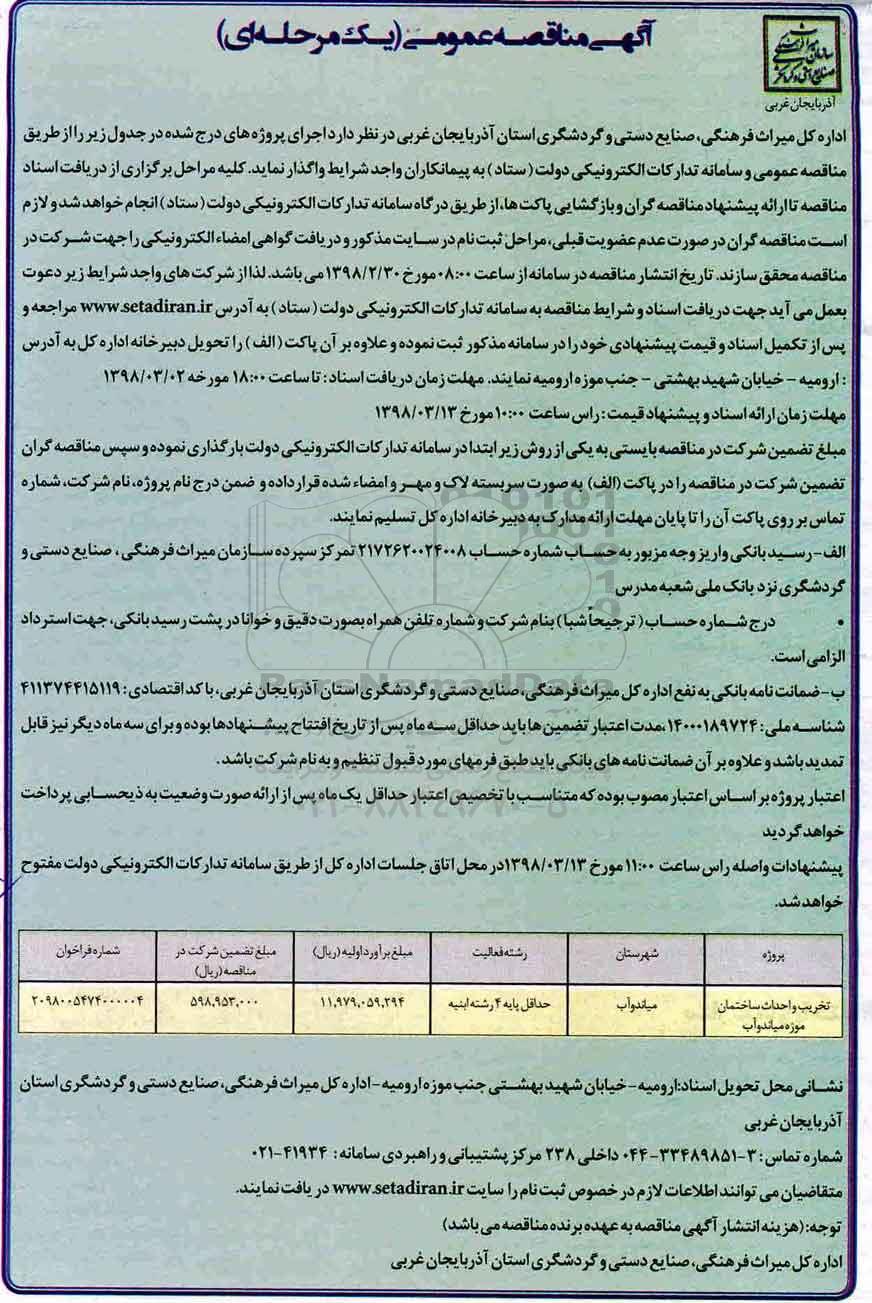 آگهی مناقصه عمومی (یک مرحله‌ای)
آذربایجان غربی
اداره کل میراث فرهنگی، صنایع دستی و گردشگری استان آذربایجان غربی در نظر دارد اجرای پروژه های درج شده در جدول زیر را از طریق
مناقصه عمومی و سامانه تدارکات الکترونیکی دولت (ستاد) به پیمانکاران واجد شرایط واگذار نماید. کلیه مراحل برگزاری از دریافت اسناد
مناقصه تا ارائه پیشنهاد مناقصه گران و بازگشایی پاکت ها، از طریق درگاه سامانه تدارکات الکترونیکی دولت (ستاد) انجام خواهد شد و لازم
است مناقصه گران در صورت عدم عضویت قبلی، مراحل ثبت نام در سایت مذکور و دریافت گواهی امضاء الکترونیکی را جهت شرکت در
مناقصه محقق سازند. تاریخ انتشار مناقصه در سامانه از ساعت ۰۸:۰۰ مورخ ۱۳۹۸/۲/۳۰ می باشد. لذا از شرکت های واجد شرایط زیر دعوت
بعمل می آید جهت دریافت اسناد و شرایط مناقصه به سامانه تدارکات الکترونیکی دولت (ستاد) به آدرس www.setadiran.ir مراجعه و
پس از تکمیل اسناد و قیمت پیشنهادی خود را در سامانه مذکور ثبت نموده و علاوه بر آن پاکت (الف) را تحویل دبیرخانه اداره کل به آدرس
: ارومیه – خیابان شهید بهشتی – جنب موزه ارومیه نمایند. مهلت زمان دریافت اسناد: تا ساعت ۱۸:۰۰ مورخه ۱۳۹۸/۰۳/۰۲
مهلت زمان ارائه اسناد و پیشنهاد قیمت: راس ساعت ۱۰:۰۰ مورخ ۱۳۹۸/۰۳/۱۳
مبلغ تضمین شرکت در مناقصه بایستی به یکی از روش زیر ابتدا در سامانه تدارکات الکترونیکی دولت بارگذاری نموده و سپس مناقصه گران
تضمین شرکت در مناقصه را در پاکت (الف) به صورت سربسته لاک و مهر و امضاء شده قرار داده و ضمن درج نام پروژه، نام شرکت، شماره
تماس بر روی پاکت آن را تا پایان مهلت ارائه مدارک به دبیرخانه اداره کل تسلیم نمایند.
الف- رسید بانکی واریز وجه مزبور به حساب شماره حساب ۲۱۷۲۶۲۰۰۲۴۰۰۸ تمرکز سپرده سازمان میراث فرهنگی، صنایع دستی و
گردشگری نزد بانک ملی شعبه مدرس
• درج شماره حساب (ترجیحاً شبا) بنام شرکت و شماره تلفن همراه بصورت دقیق و خوانا در پشت رسید بانکی، جهت استرداد
الزامی است.
ب- ضمانت نامه بانکی به نفع اداره کل میراث فرهنگی، صنایع دستی و گردشگری استان آذربایجان غربی، با کد اقتصادی: ۴۱۱۳۷۴۴۱۵۱۱۹
شناسه ملی: ۱۴۰۰۰۱۸۹۷۲۴، مدت اعتبار تضمین ها باید حداقل سه ماه پس از تاریخ افتتاح پیشنهادها بوده و برای سه ماه دیگر نیز قابل
تمدید باشد و علاوه بر آن ضمانت نامه های بانکی باید طبق فرمهای مورد قبول تنظیم و به نام شرکت باشد.
اعتبار پروژه بر اساس اعتبار مصوب بوده که متناسب با تخصیص اعتبار حداقل یک ماه پس از ارائه صورت وضعیت به ذیحسابی پرداخت
خواهد گردید
پیشنهادات واصله راس ساعت ۱۱:۰۰ مورخ ۱۳۹۸/۰۳/۱۳ در محل اتاق جلسات اداره کل از طریق سامانه تدارکات الکترونیکی دولت مفتوح
خواهد شد.
پروژه شهرستان رشته فعالیت مبلغ برآورد اولیه (ریال) مبلغ تضمین شرکت در مناقصه (ریال) شماره فراخوان
تخریب و احداث ساختمان موزه میاندوآب میاندوآب حداقل پایه ۴ رشته ابنیه ۱۱,۹۷۹,۰۵۹,۲۹۴ ۵۹۸,۹۵۳,۰۰۰ ۲۰۹۸۰۰۵۴۷۴۰۰۰۰۰۴
نشانی محل تحویل اسناد: ارومیه - خیابان شهید بهشتی جنب موزه ارومیه - اداره کل میراث فرهنگی، صنایع دستی و گردشگری استان
آذربایجان غربی
شماره تماس: ۳-۳۳۴۸۹۸۵۱-۰۴۴ داخلی ۲۳۸ مرکز پشتیبانی و راهبردی سامانه: ۴۱۹۳۴-۰۲۱
متقاضیان می توانند اطلاعات لازم در خصوص ثبت نام را سایت www.setadiran.ir دریافت نمایند.
توجه: (هزینه انتشار آگهی مناقصه به عهده برنده مناقصه می باشد)
اداره کل میراث فرهنگی، صنایع دستی و گردشگری استان آذربایجان غربی
ParsNamadData